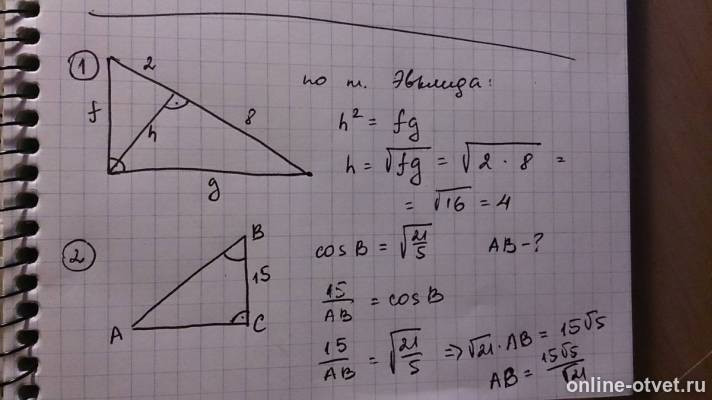 ① 2
f h 8
g
по т. Эвклида:
h² = fg
h = √fg = √2 · 8 =
= √16 = 4
② B
15
A C
cos B = √21/5 AB - ?
15/AB = cos B
15/AB = √21/5 => √21 · AB = 15√5
AB = 15√5/√21
online-otvet.ru